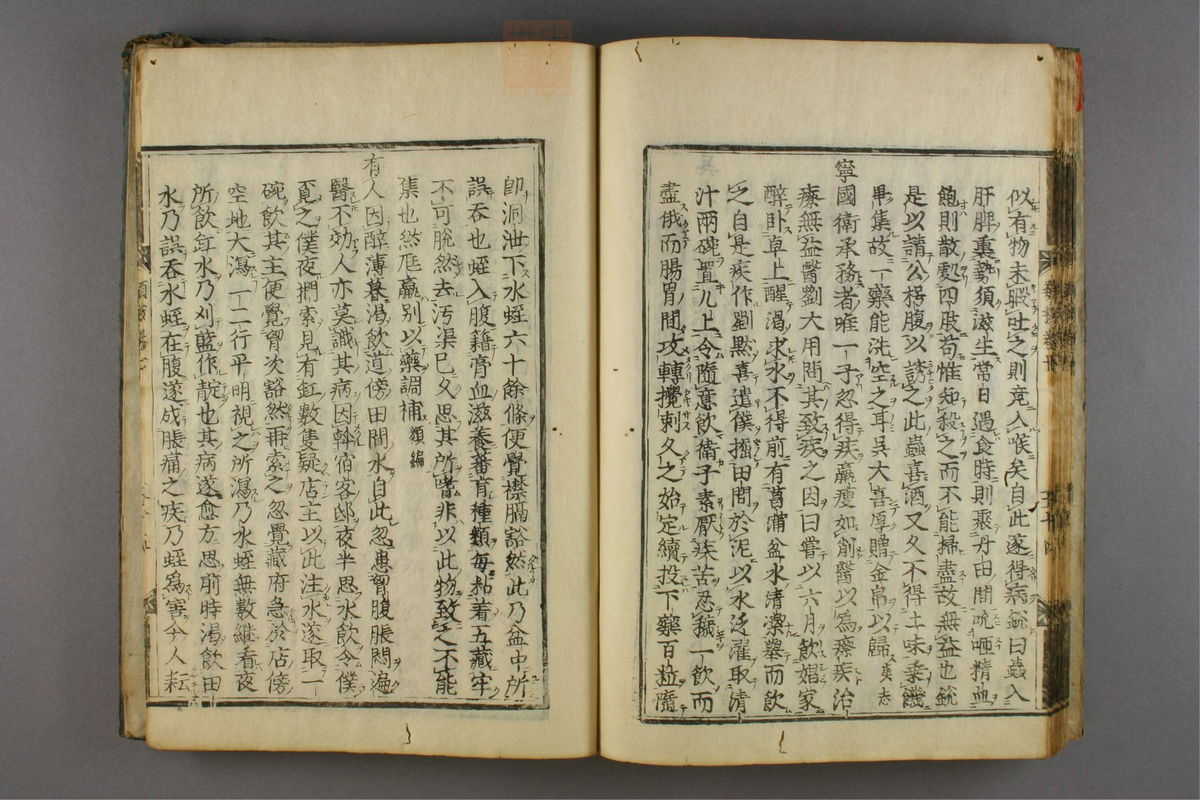 似有物未暇吐之則竟入喉矣自此遂得病銳曰蟲入
肝脾裏勢須滋生常日遇食時則聚丹田間吮咂精血
飽則散處四肢苟惟知殺之而不能掃盡故無益也銳
是以請公枵腹以誘之此蟲喜酒又久不得土味乘饑
畢集故一藥能洗空之耳吳大喜厚贈金帛以歸夷志
寧國衛承務者唯一子忽得疾羸瘦如削醫以為瘵疾治
療無益醫劉大用問其致疾之因曰嘗以六月飲娼家
醉臥卓上醒渴求水不得前有菖蒲盆水清潔舉而飲
之自是疾作劉默喜遣僕掘田間淤泥以水泛濯取清
汁兩碗置几上令隨意飲衛子素厭疾苦忍穢一飲而
盡俄而腸胃間攻轉攪刺久之始定續投下藥百粒隨
即洞泄下水蛭六十餘條便覺襟膈豁然此乃盆中所
誤吞也蛭入腹籍膏血滋養蕃育種類每黏着五藏牢
不可脫然去汚渠已久思其所嗜非以此物致之不能
集也然尫羸別以藥調補類編
有人因醉薄暮渴飲道傍田間水自此忽患胷腹脹悶遍
醫不効人亦莫識其病因幹宿客邸夜半思水飲令僕
覓之僕夜捫索見有缸數隻疑店主以此注水遂取一
碗飲其主便覺胷次豁然再索之忽覺藏府急於店傍
空地大瀉一二行平明視之所瀉乃水蛭無數繼看夜
所飲缸水乃刈藍作靛也其病遂愈方思前時渴飲田
水乃誤吞水蛭在腹遂成脹痛之疾乃蛭為害今人耘